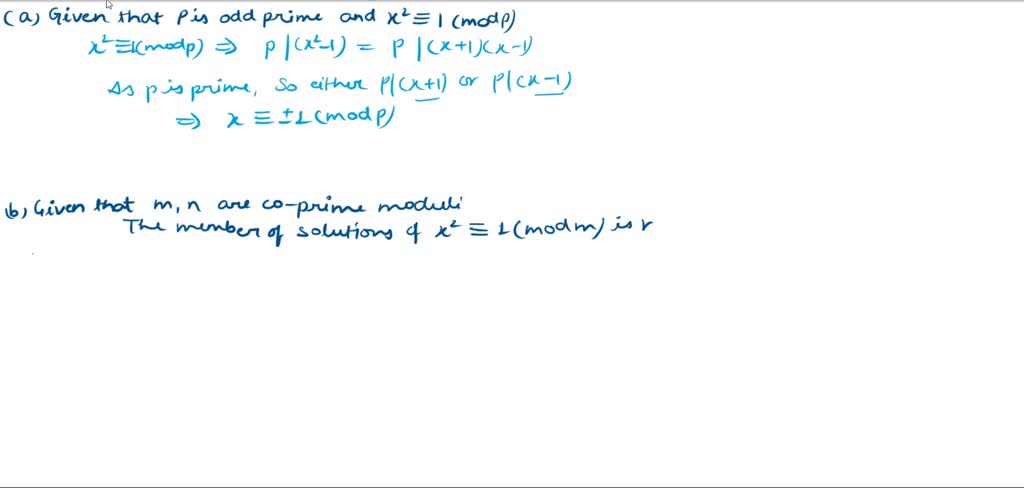 (a) Given that P is odd prime and x² ≡ 1 (mod p)
x² ≡ 1(mod p) ⇒ p | (x²-1) = p | (x+1)(x-1)
As p is prime, So either p|(x+1) or p|(x-1)
⇒ x ≡ ±1 (mod p)
(b) Given that m, n are co-prime moduli
The number of solutions of x² ≡ 1 (mod m) is r